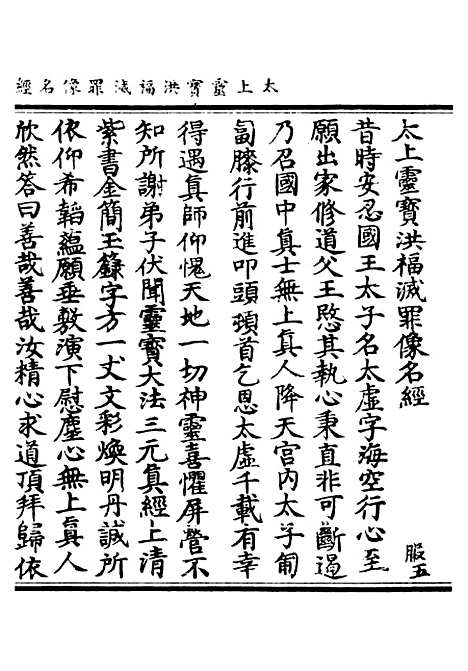 太上靈寳洪福滅罪像名經
太上靈寳洪福滅罪像名經
服五
昔時安忍國王太子名太虛字海空行心至
願出家修道父王愍其執心秉直非可斷遏
乃召國中眞士無上眞人降天宫内太子匍
匐膝行前進叩頭頊首乞恩太虛千載有幸
得遇眞師仰愧天地一切神靈喜懼屏營不
知所謝弟子伏聞靈寳大法三元眞經上清
紫書金簡玉籙字方一丈文彩煥明丹誠所
依仰希韜藴願垂敷演下慰塵心無上眞人
欣然答曰善哉善哉汝精心求道頂拜歸依